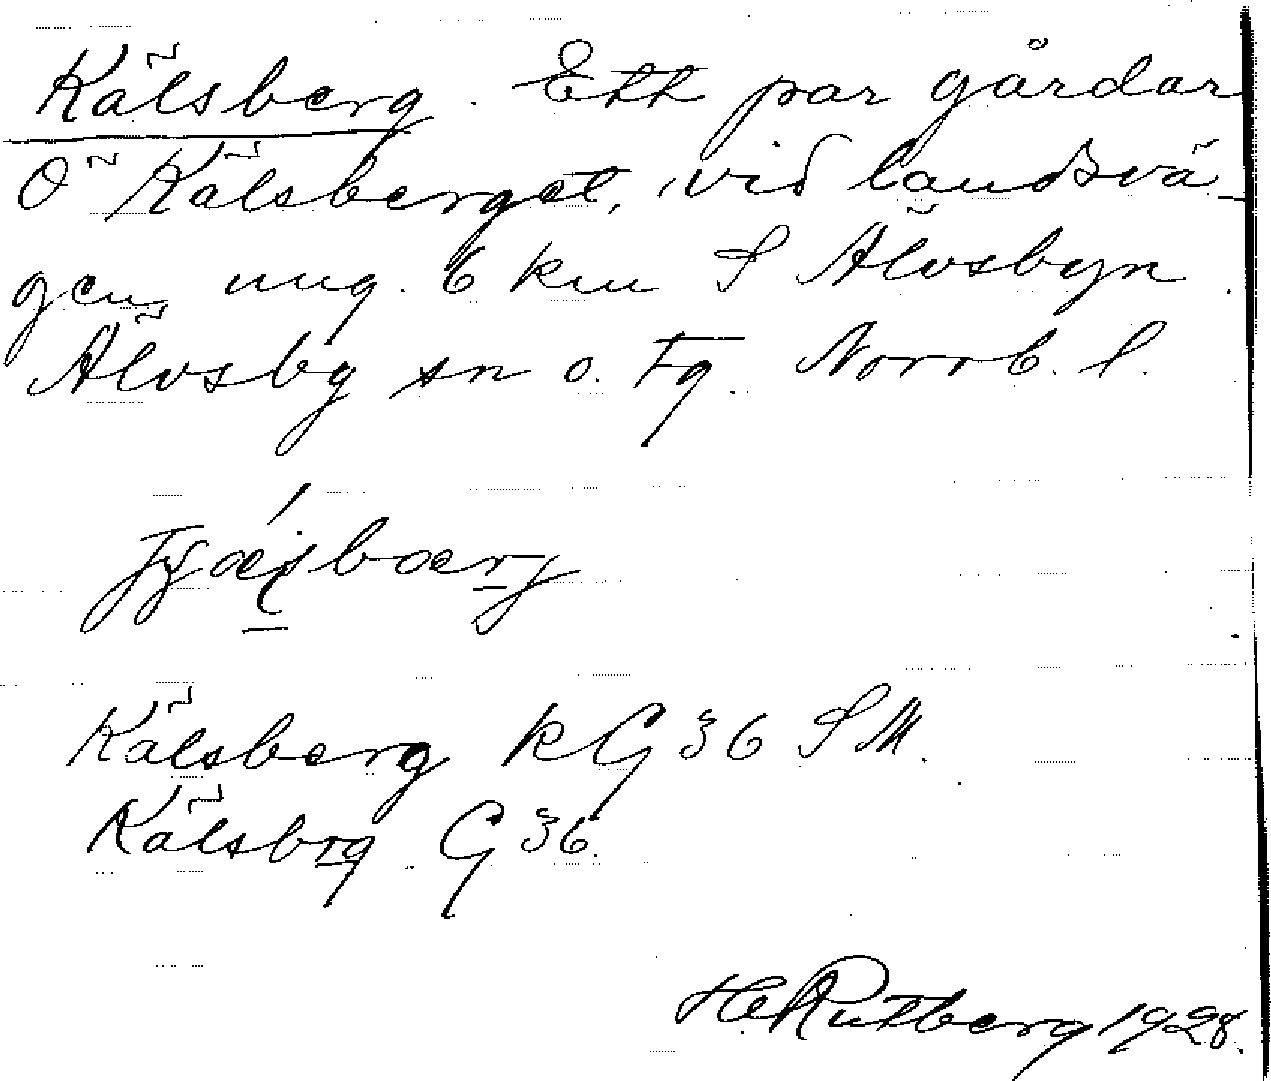 Kälsberg. Ett par gårdar
Ö Kälsberget, vid landsvä-
gen, ung. 6 km S Älvsbyn.
Älvsby sn o. Tg. Norrb. l.
Kälsberg kG 36 SM.
Kälsbrg. G 36.
H. Rutberg 1928.